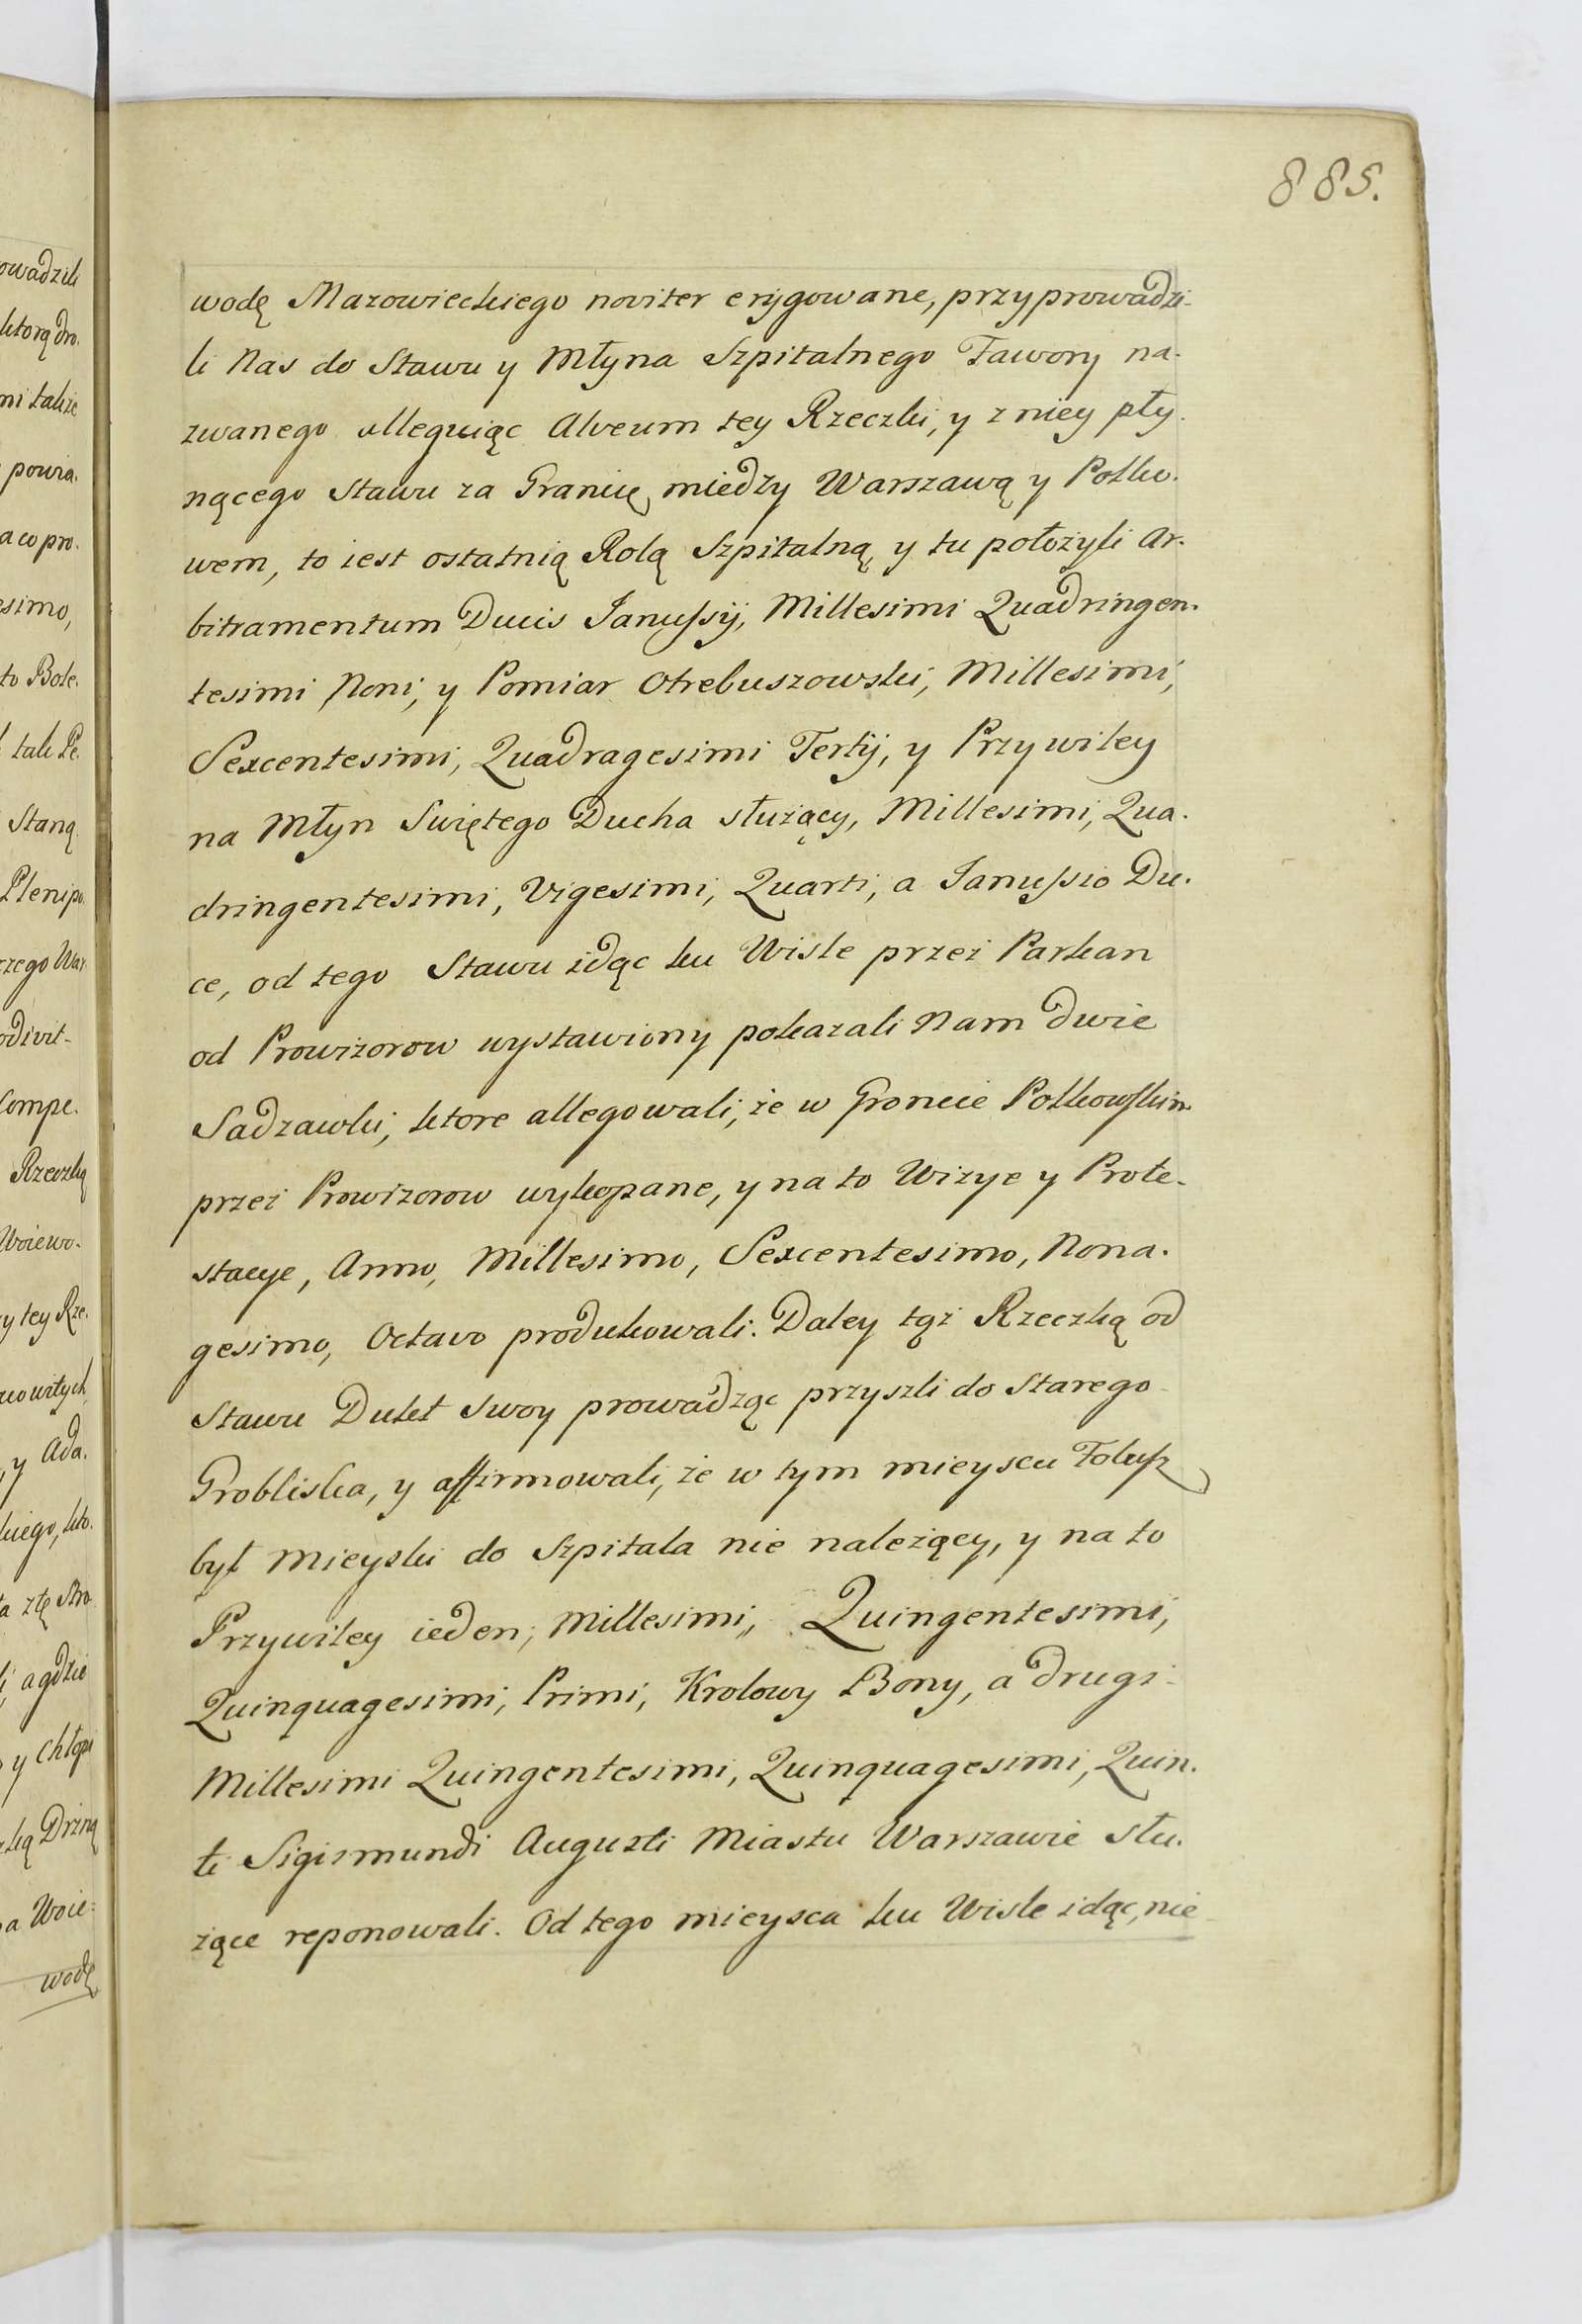 885.
wodę Mazowieckiego noviter erygowane, przyprowadzi-
li Nas do Stawu y Młyna Szpitalnego Tawory na-
zwanego alleguiąc Alveum tey Rzeczki, y z niey pły-
nącego Stawu za Granicę między Warszawą y Polko-
wem, to iest ostatnią Rolą Szpitalną, y tu położyli Ar-
bitramentum Ducis Janussij, Millesimi Quadringen-
tesimi Noni, y Pomiar Otrebuszowski, Millesimi,
Sexcentesimi, Quadragesimi Tertij, y Przywiley
na Młyn Swiętego Ducha służący, Millesimi, Qua-
dringentesimi, Vigesimi, Quarti, a Janussio Du-
ce, od tego Stawu idąc ku Wisle przez Parkan
od Prowizorow wystawiony pokazali Nam dwie
Sadzawki, ktore allegowali, że w Groncie Polkowskim
przez Prowizorow wykopane, y na to Wizye y Prote-
stacye, Anno, Millesimo, Sexcentesimo, Nona-
gesimo, Octavo produkowali. Daley tąż Rzeczką od
Stawu Dukt swoy prowadząc przyszli do Starego
Grobliska, y affirmowali, że w tym mieyscu Folusz
był Mieyski do Szpitala nie należący, y na to
Przywiley ieden, Millesimi, Quingentesimi,
Quinquagesimi, Primi, Krolowy Bony, a drugi
Millesimi Quingentesimi, Quinquagesimi, Quin-
ti Sigismundi Augusti Miastu Warszawie słu-
żące reponowali. Od tego mieysca ku Wisle idąc, nie